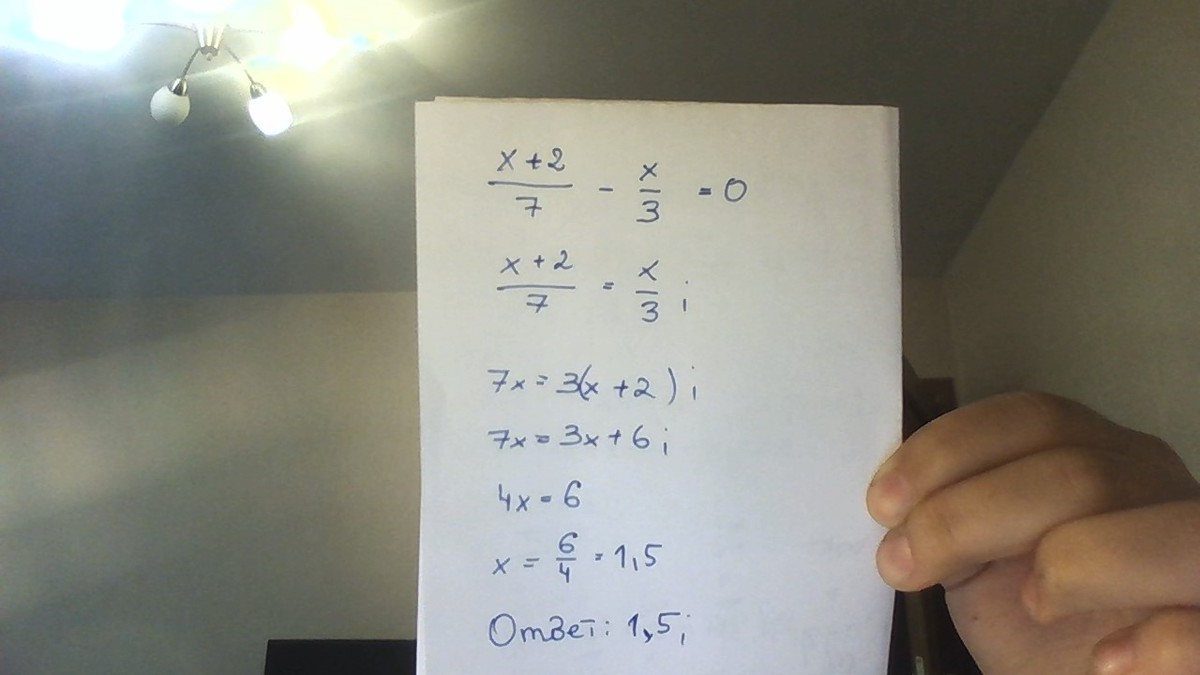 x+2/7 - x/3 = 0
x+2/7 = x/3;
7x = 3(x+2);
7x = 3x+6;
4x = 6
x = 6/4 = 1,5
Ответ: 1,5;